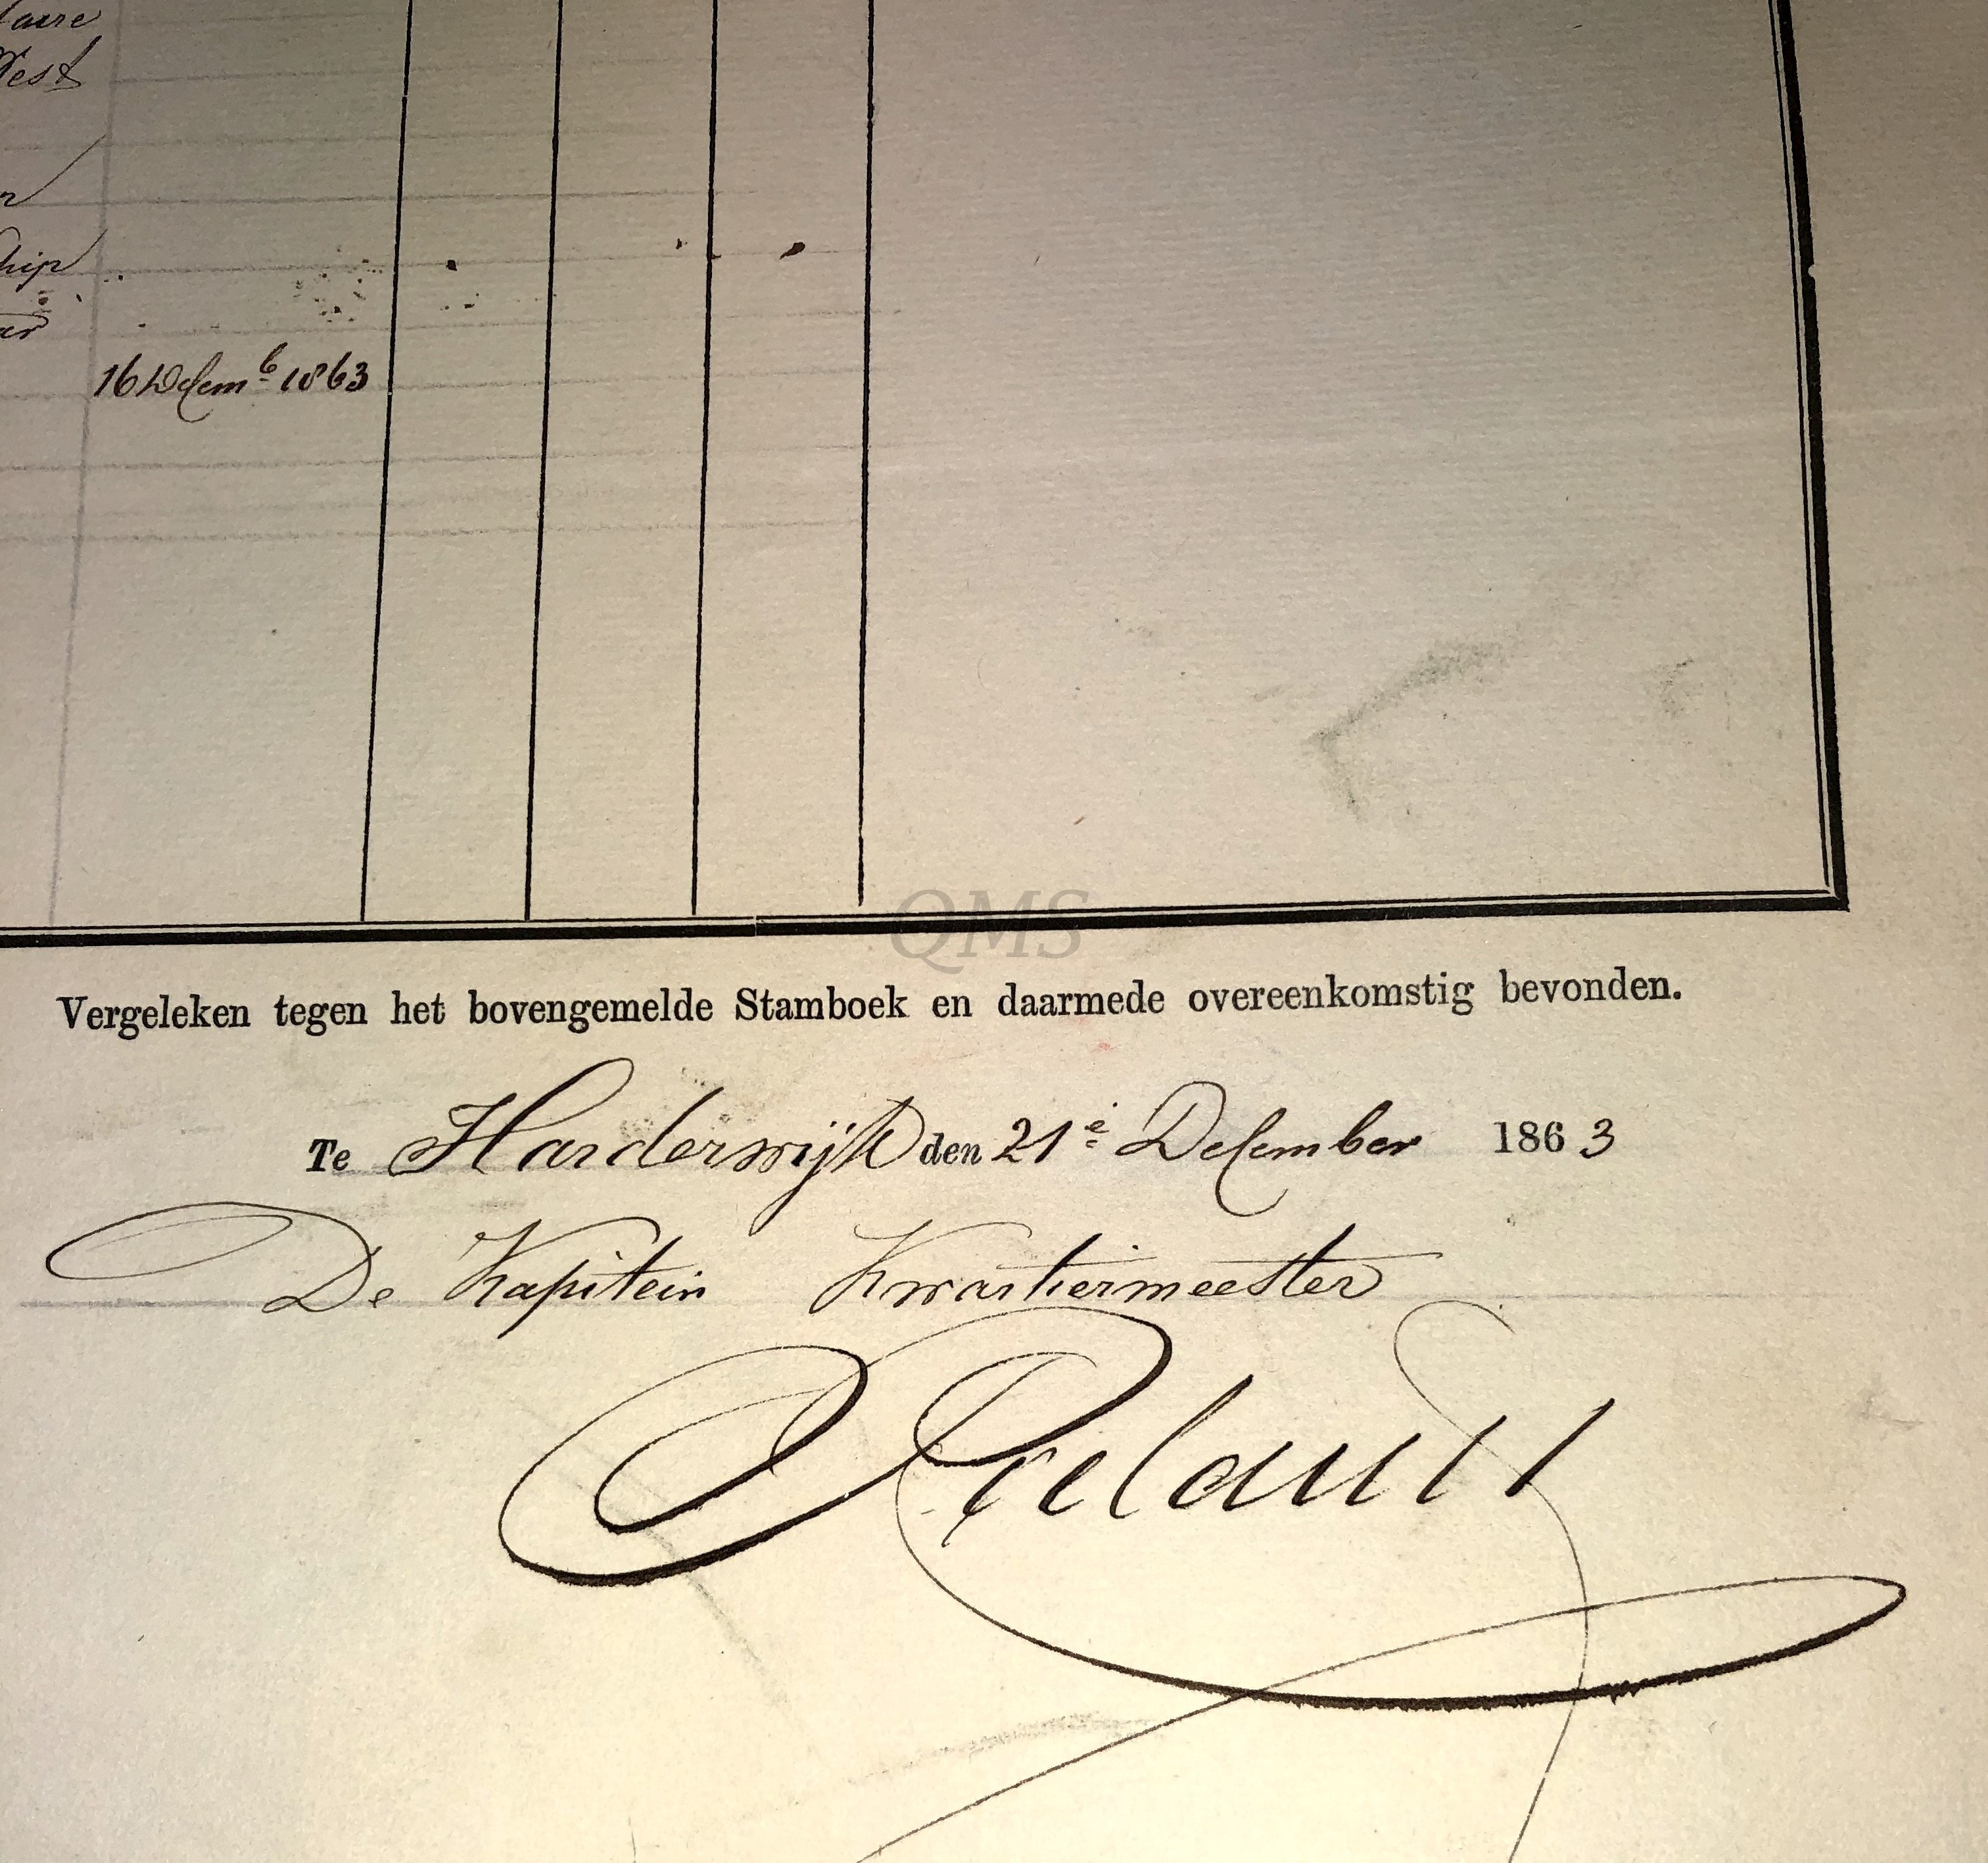 16 Decemb 1863
QMS
Vergeleken tegen het bovengemelde Stamboek en daarmede overeenkomstig bevonden.
Te Harderwijk den 21e December 1863
De Kapitein Kwartiermeester